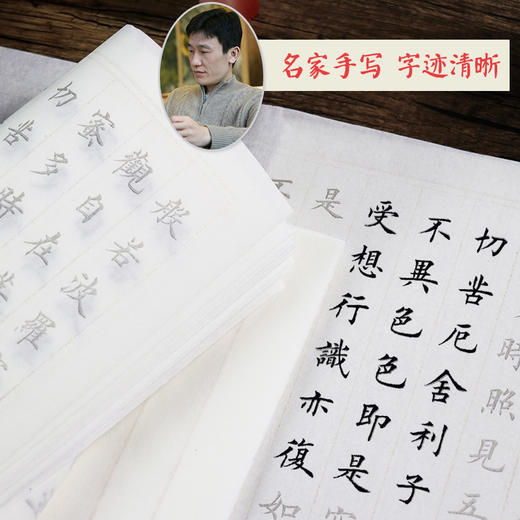 名家手写 字迹清晰
般若波羅
觀自在
蜜多時
切苦
時照見五
切苦厄舍利子
不異色色即是空
受想行識亦復如
是
不